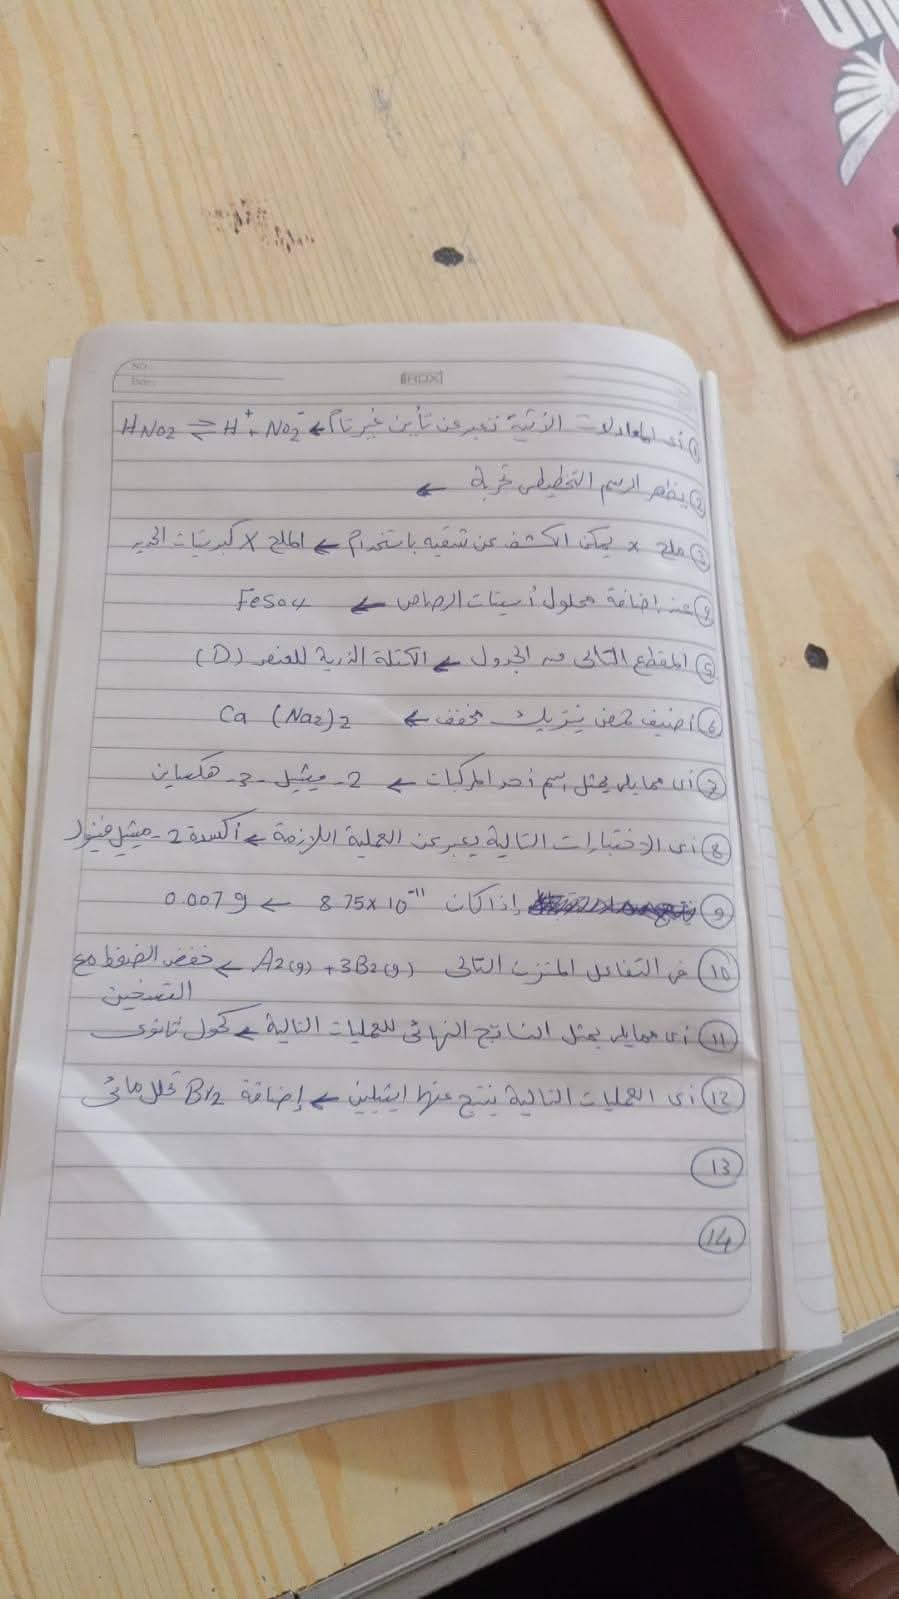 NO.
Date:
HDX
① أى المعادلات الأتية تعبر عن تأين غير تام ← HNO2 ⇌ H+ + NO2-
② يظهر الرسم التخطيطى تجربة ←
③ ملح x يمكن الكشف عن شقيه باستخدام ← الملح X كبريتات الحديد
④ عند اضافة محلول أسيتات الرصاص ← FeSO4
⑤ المقطع التالى من الجدول ← الكتلة الذرية للعنصر (D)
⑥ أضيف حمض نيتريك مخفف ← Ca (Na2)2
⑦ أى مما يلى يمثل اسم أحد المركبات ← 2- ميثيل -3- هكساين
⑧ أى الاختبارات التالية يعبر عن العملية اللازمة ← أكسدة 2- ميثيل فينول
⑨ إذا كان 8.75x10-11 ← 0.007g
⑩ فى التفاعل المتزن التالى A2(g) + 3B2(g) ← خفض الضغط مع
التسخين
⑪ أى مما يلى يمثل الناتج النهائى للعمليات التالية ← كحول ثانوى
⑫ أى العمليات التالية ينتج عنها ايثيلين ← إضافة Br2 تحلل مائى
⑬
⑭